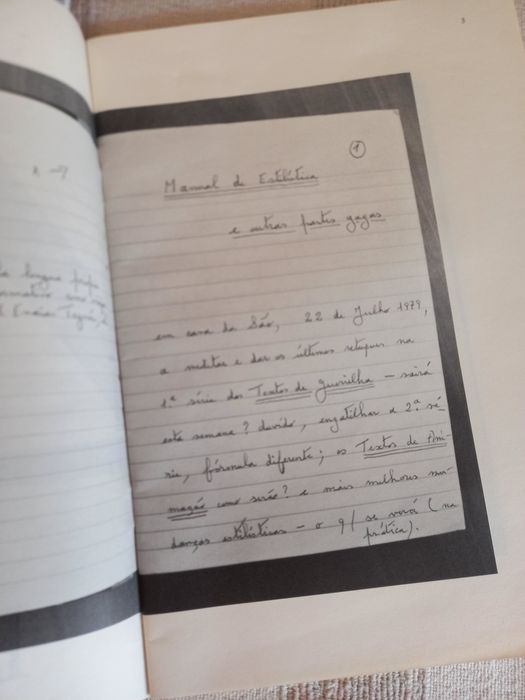 3
1
Manual de Estilística
e outras partes gagas
em casa da São, 22 de Julho 1979,
a meditar e dar os últimos retoques na
1.ª série dos Textos de Guerrilha – sairá
esta semana? duvido, engatilhar a 2.ª sé-
rie, fórmula diferente; os Textos de Ani-
mação como serão? e mais milhões mu-
danças estilísticas – o q/ se verá (na
prática).
língua